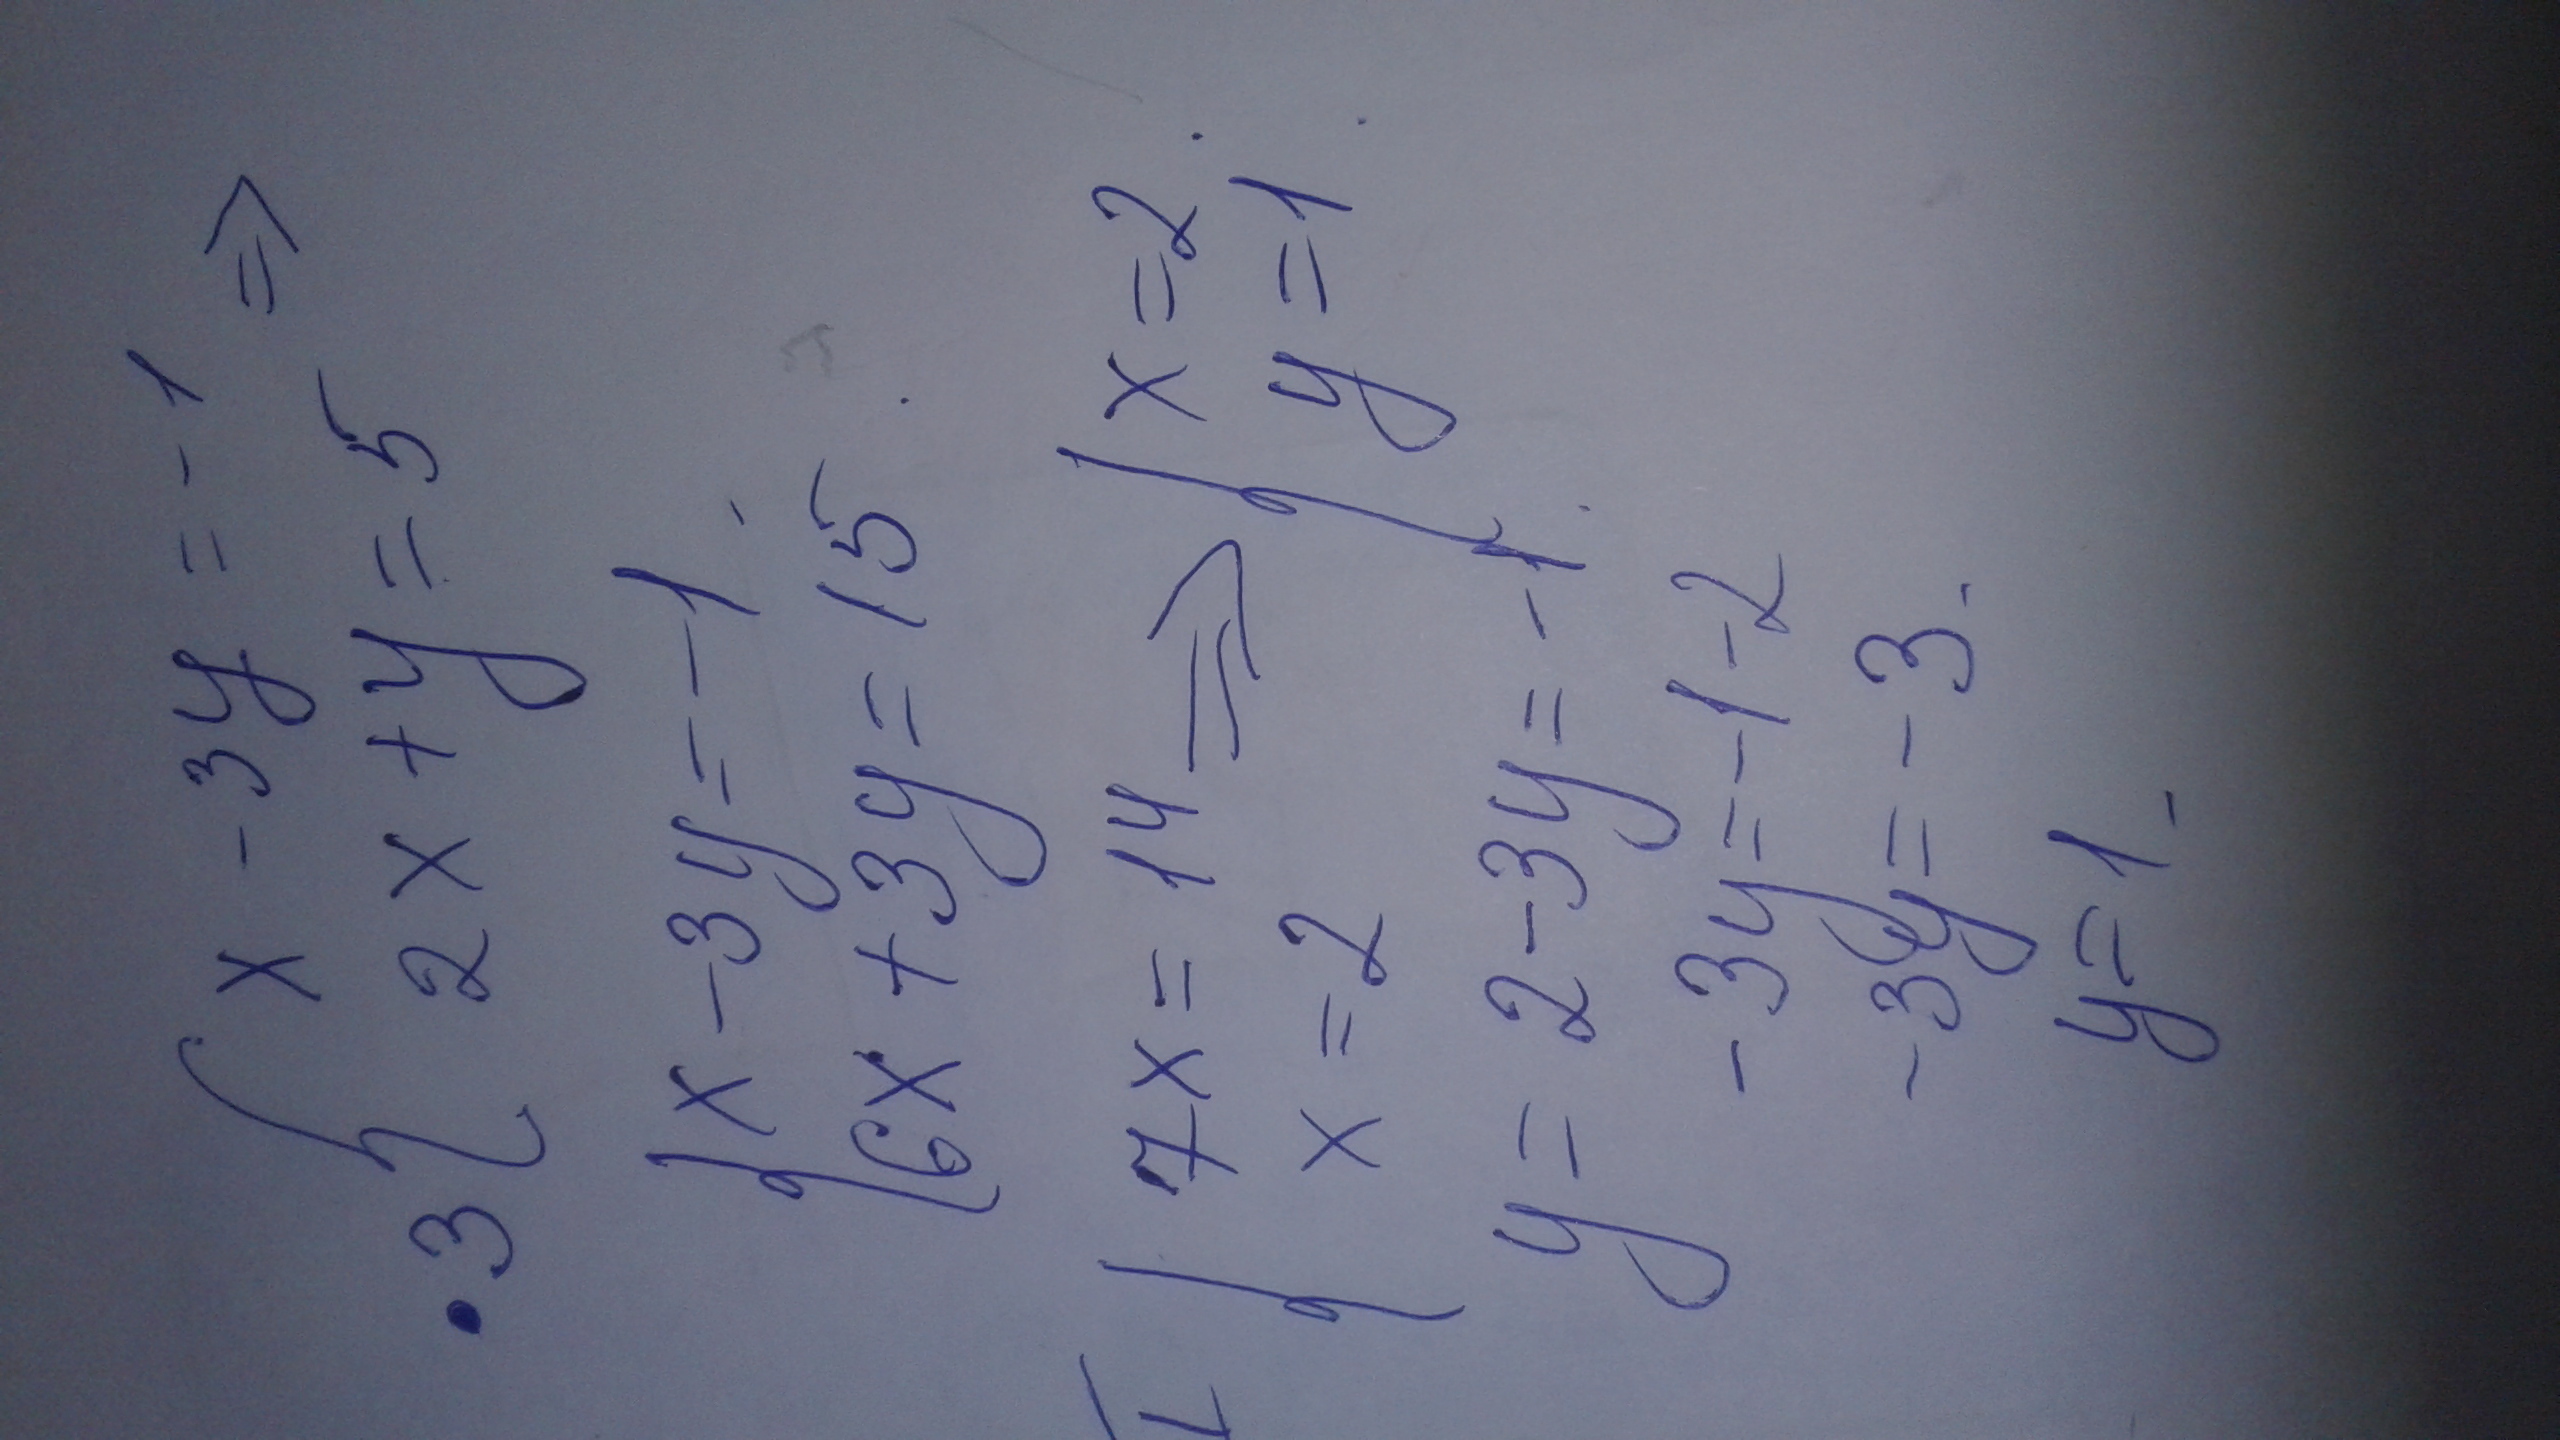 x - 3y = -1 =>
·3 { 2x + y = 5
{ x - 3y = -1
6x + 3y = 15.
{ 7x = 14 => { x = 2.
x = 2 y = 1.
y = 2 - 3y = -1.
-3y = -1 - 2
-3y = -3.
y = 1.